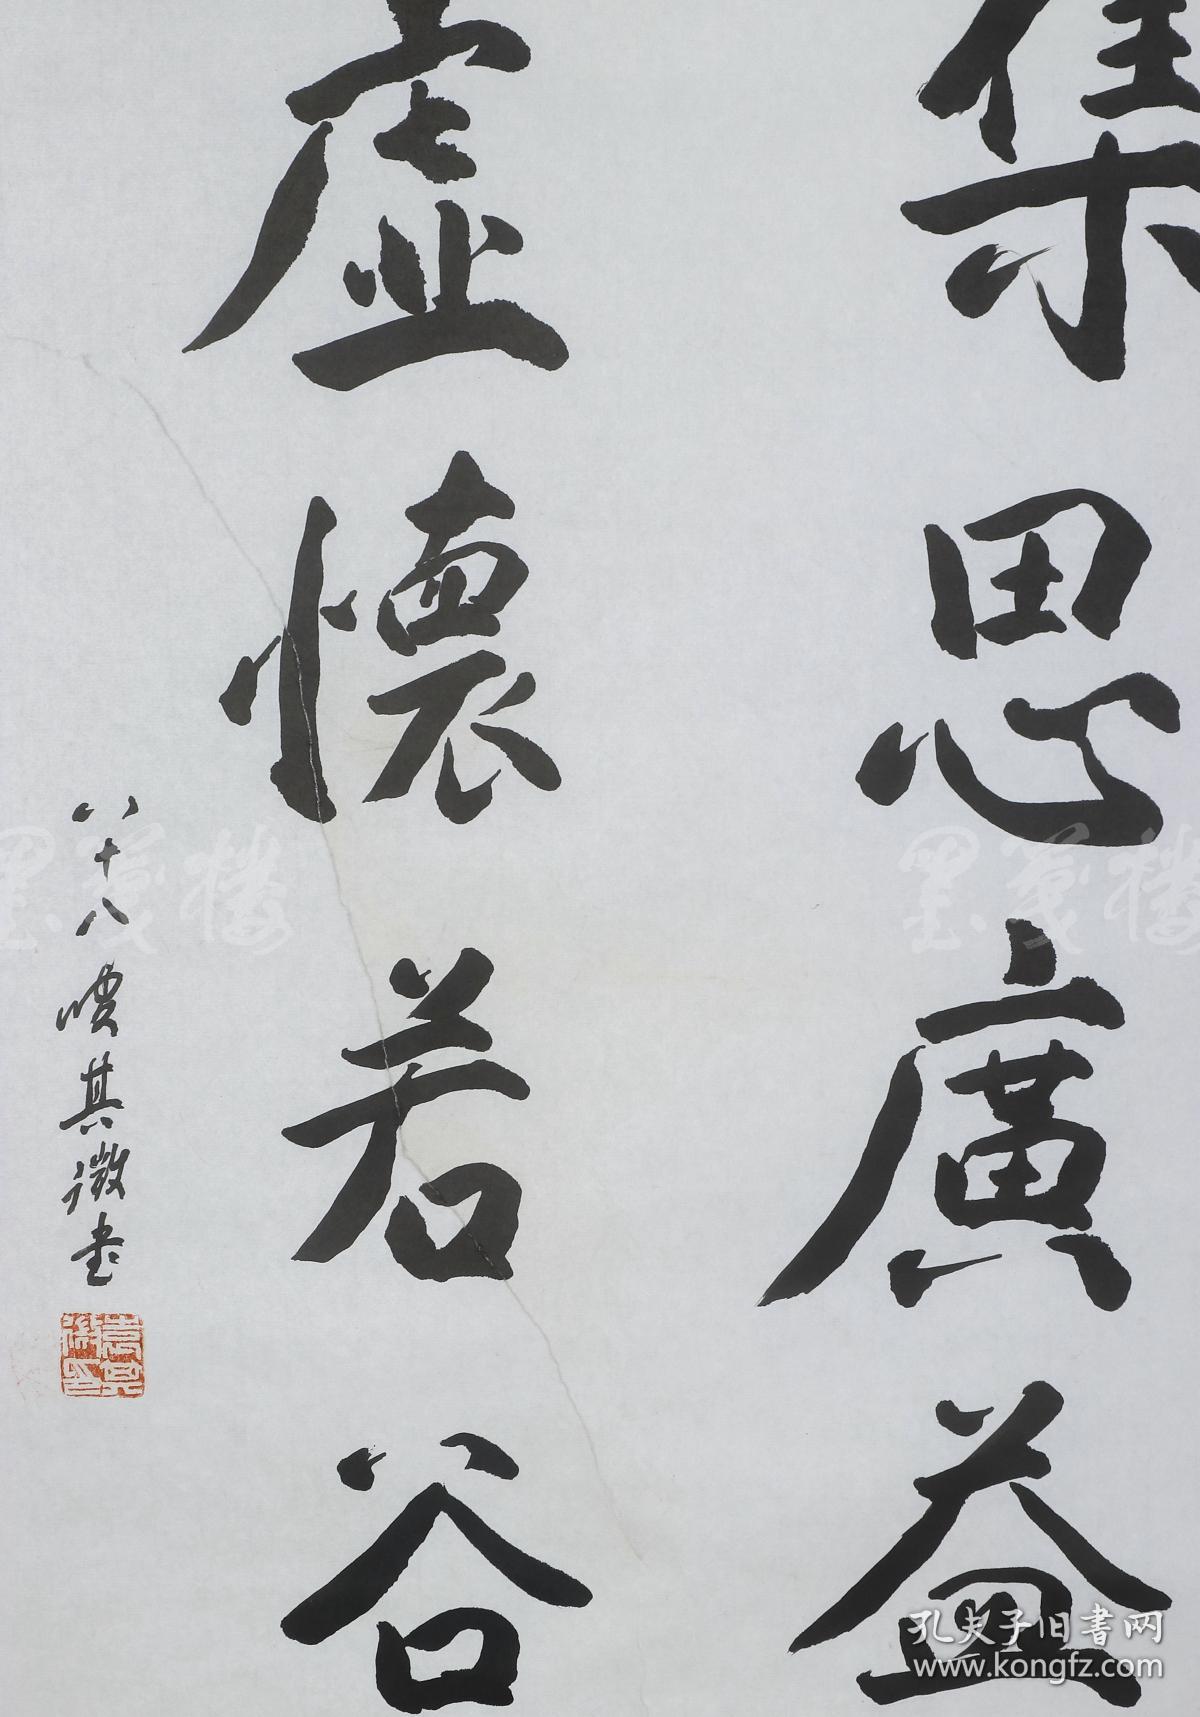 集思廣益
虛懷若谷
八十八叟其微书
墨箋楼
墨箋楼
孔夫子旧書网
www.kongfz.com